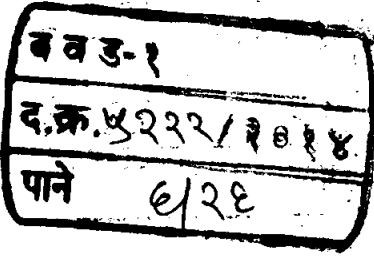 ब व ड-१
द.क्र.५२२२/२०१४
पाने ६/२६